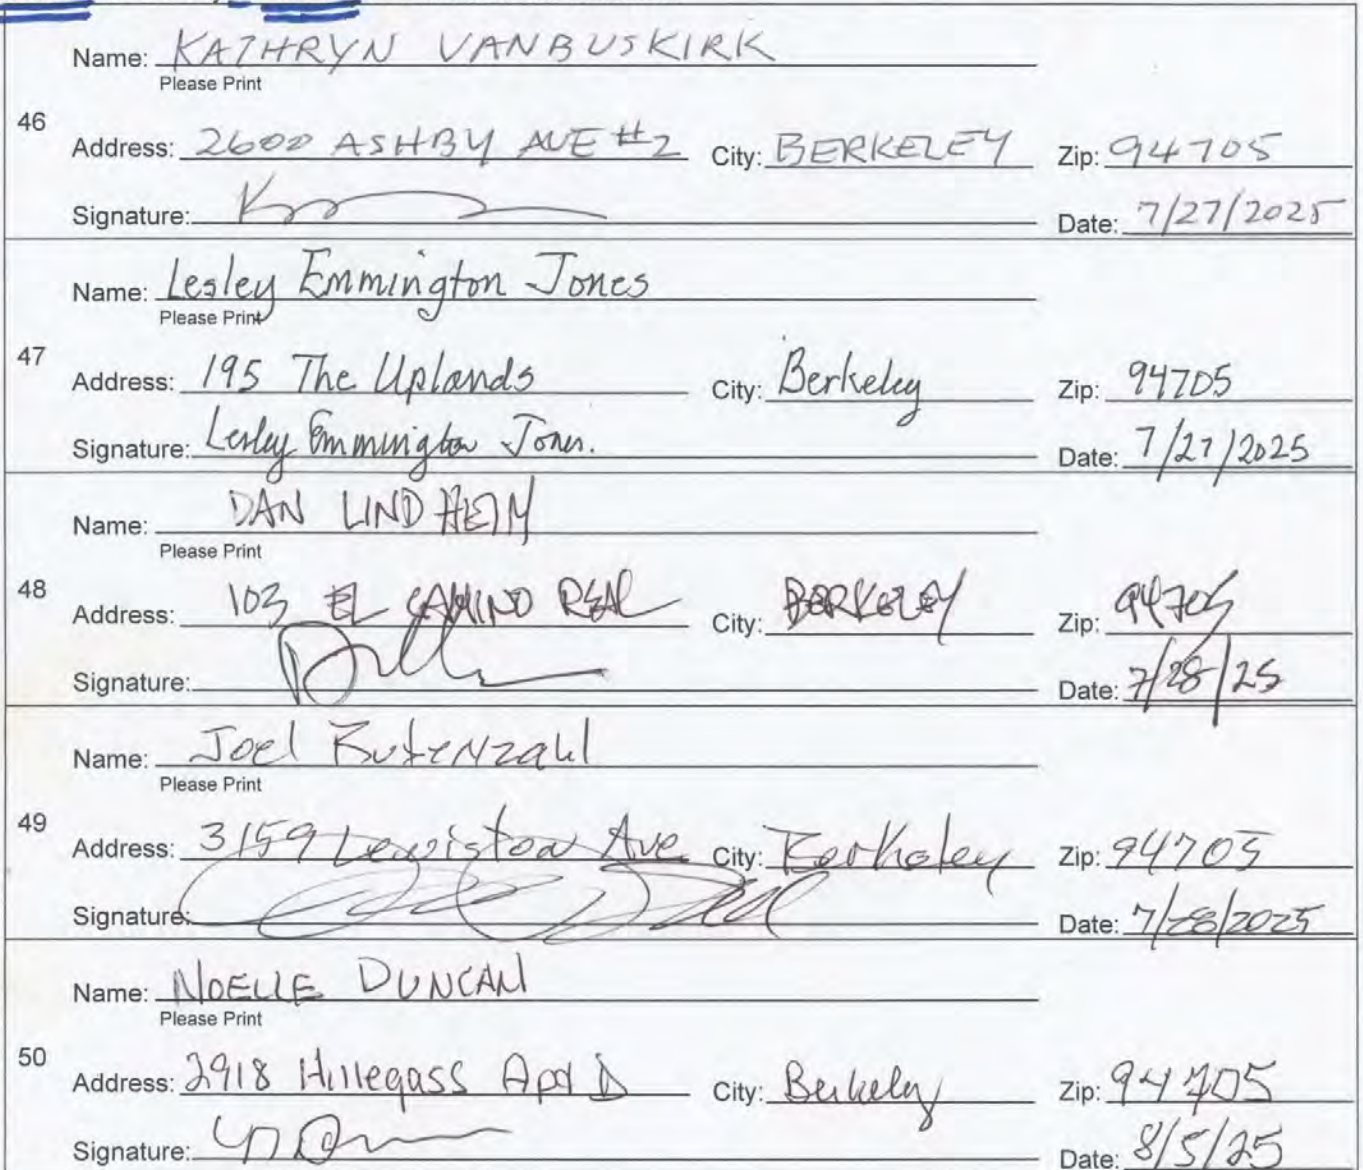 Name: KATHRYN VANBUSKIRK
Please Print
46
Address: 2600 ASHBY AVE #2 City: BERKELEY Zip: 94705
Signature: Date: 7/27/2025
Name: Lesley Emmington Jones
Please Print
47
Address: 195 The Uplands City: Berkeley Zip: 94705
Signature: Lesley Emmington Jones. Date: 7/27/2025
Name: DAN LINDHEIM
Please Print
48
Address: 103 EL CAMINO REAL City: BERKELEY Zip: 94705
Signature: Date: 7/28/25
Name: Joel Rutenzahl
Please Print
49
Address: 3159 Lewiston Ave. City: Berkeley Zip: 94705
Signature: Date: 7/28/2025
Name: NOELLE DUNCAN
Please Print
50
Address: 2918 Hillegass Apt D City: Berkeley Zip: 94705
Signature: Date: 8/5/25